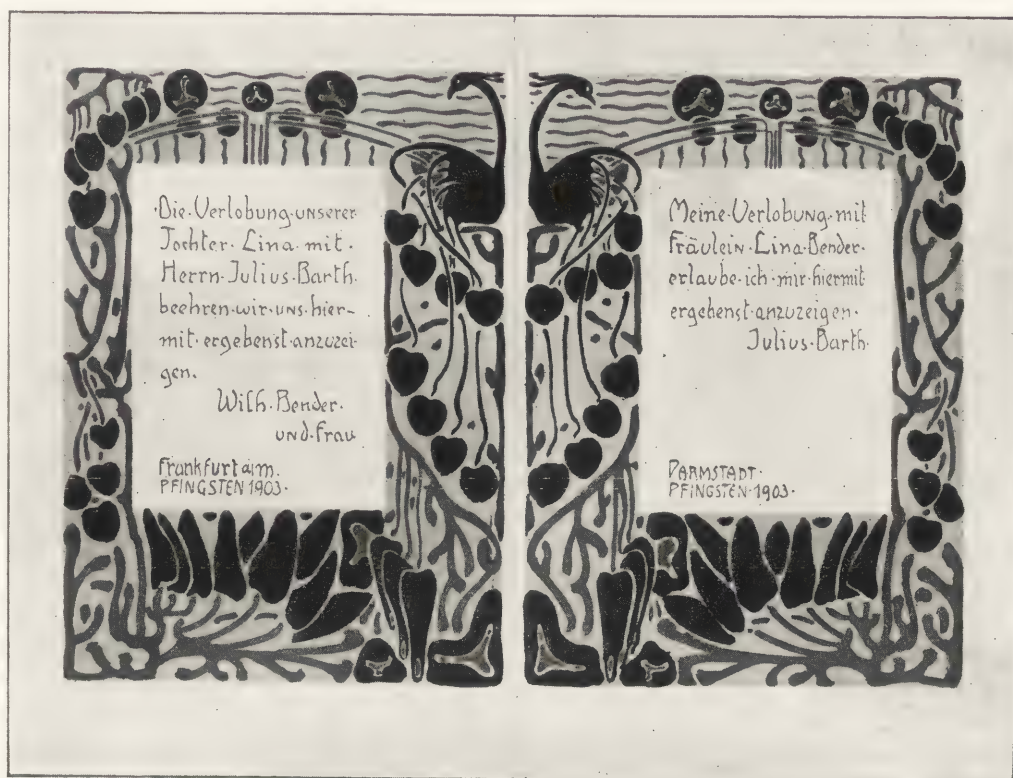 ·Die·Verlobung·unserer
Tochter·Lina·mit·
Herrn·Julius·Barth·
beehren·wir·uns·hier-
mit·ergebenst·anzuzei-
gen.
Wilh·Bender·
und·Frau
Frankfurt a/m.
PFINGSTEN 1903·
Meine·Verlobung·mit
Fräulein·Lina·Bender·
erlaube·ich·mir·hiermit
ergebenst·anzuzeigen·
Julius·Barth·
DARMSTADT·
PFINGSTEN·1903·